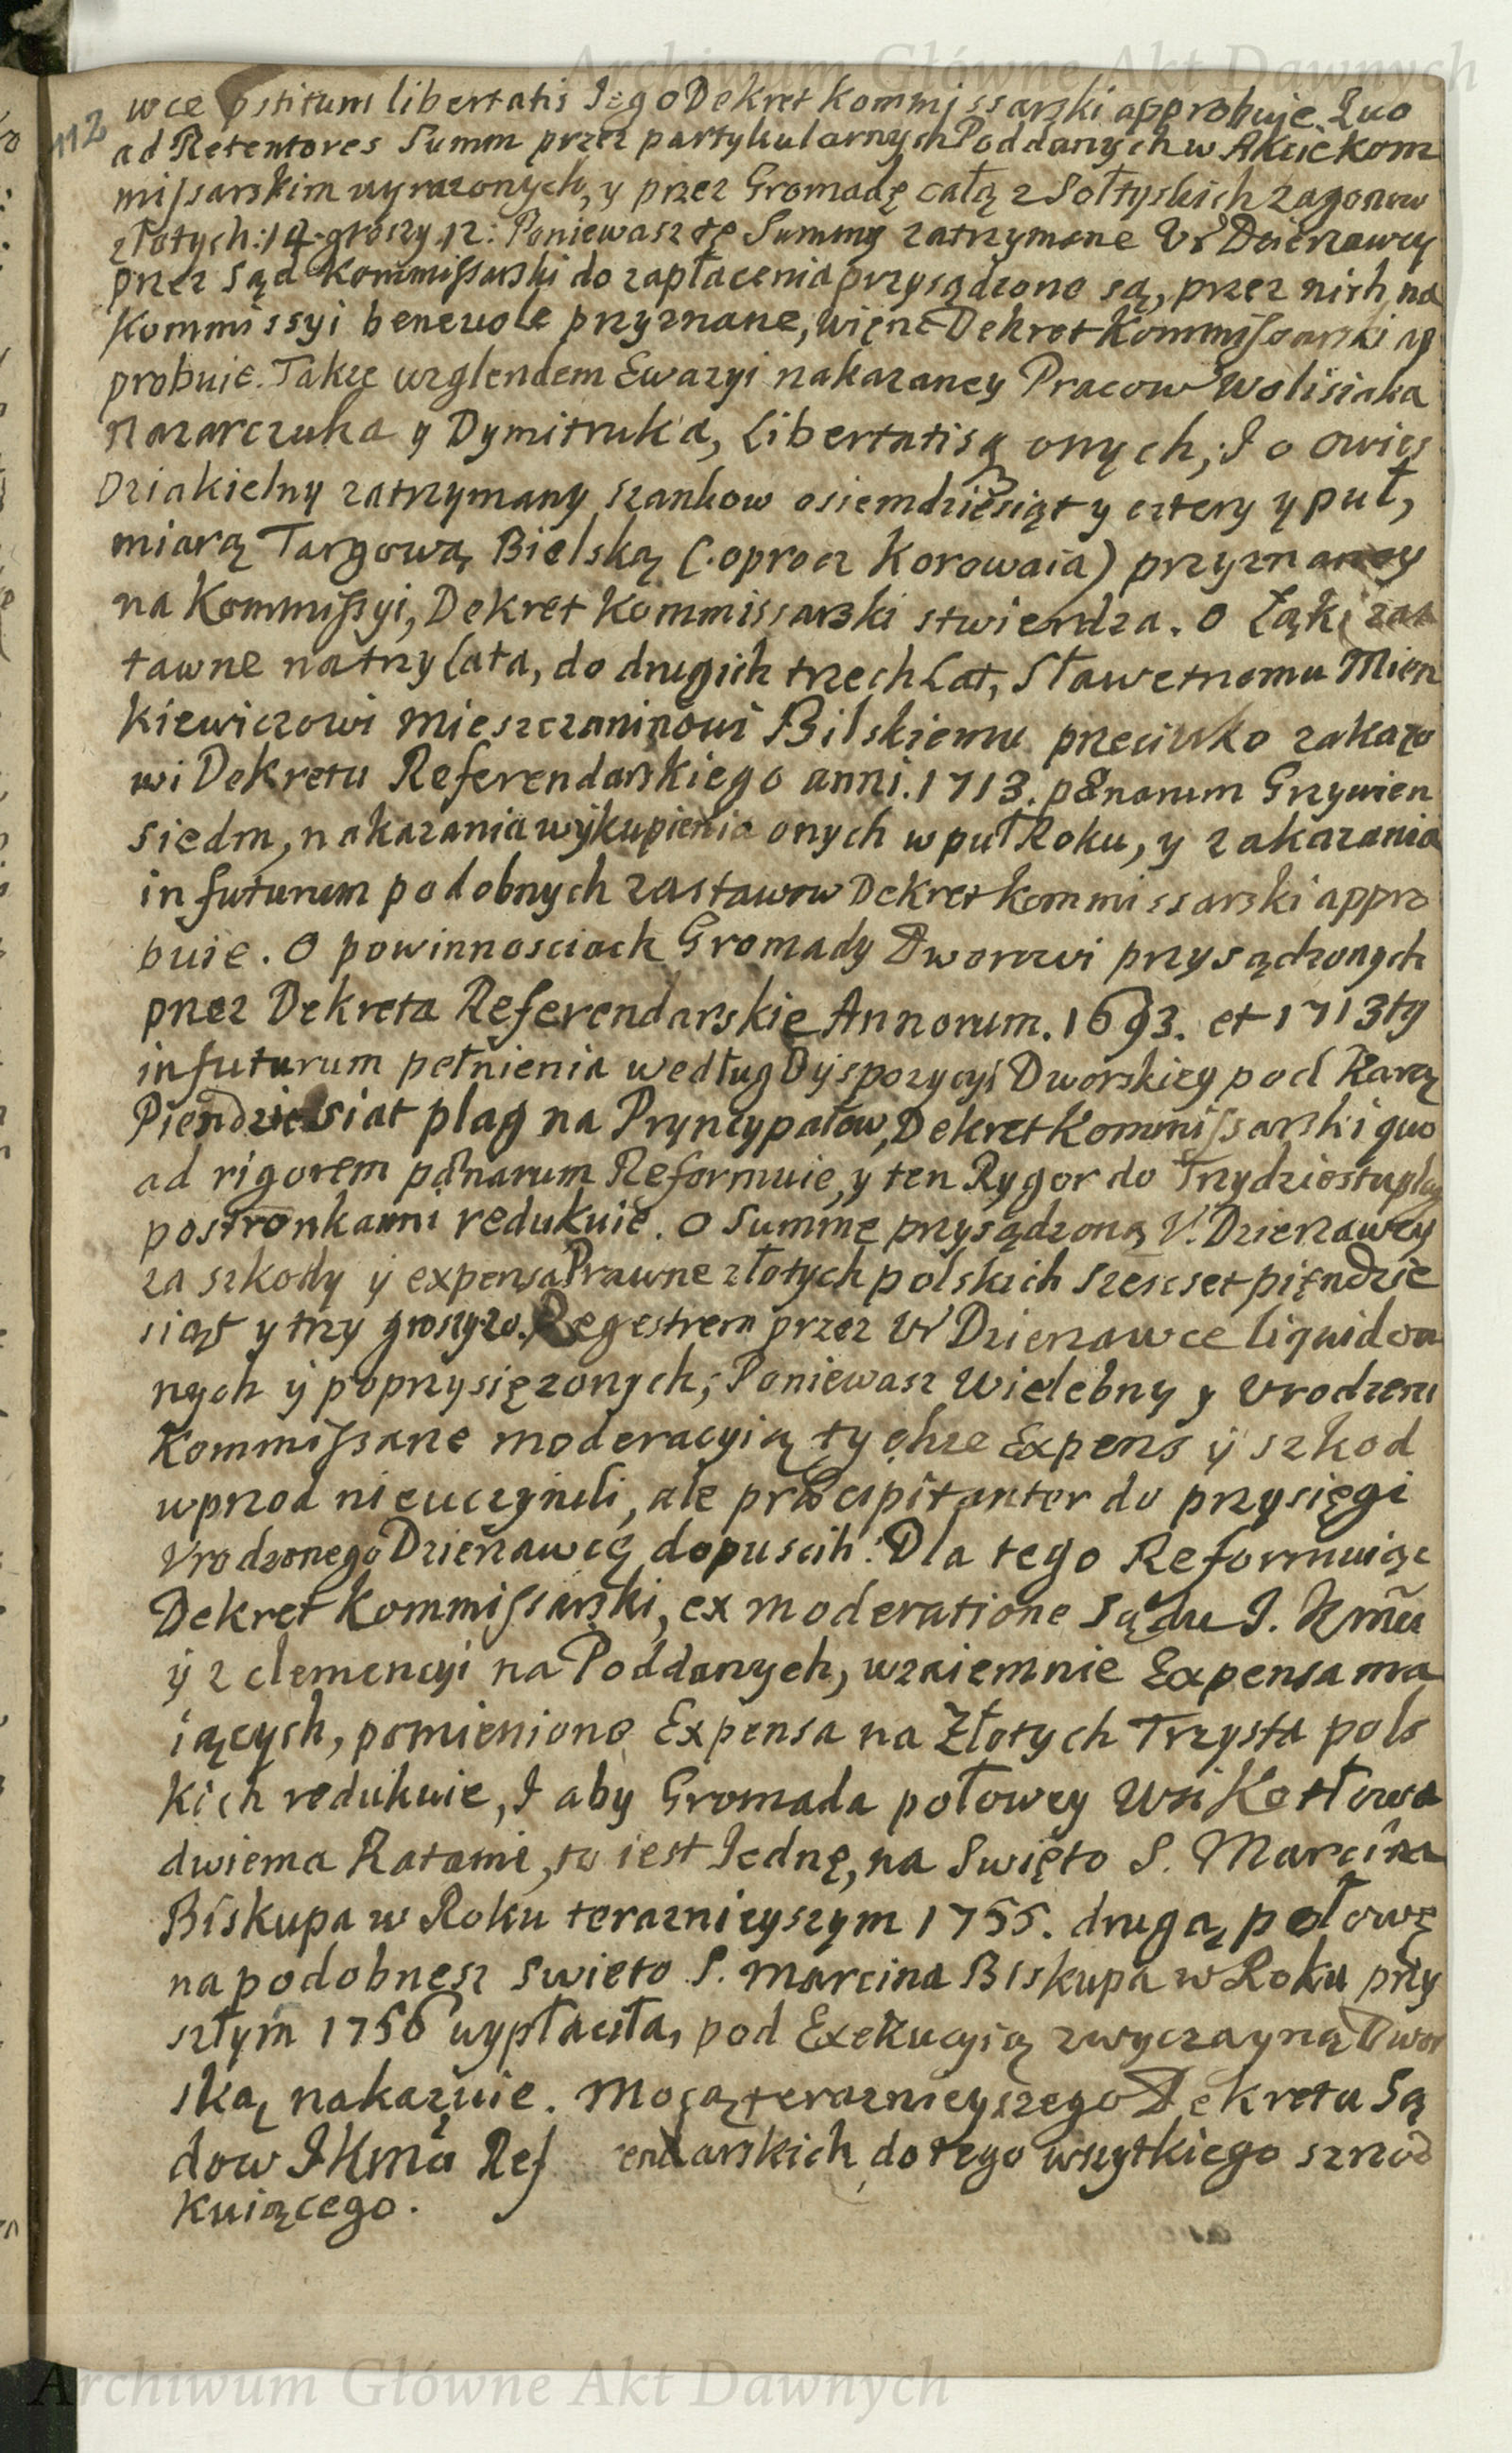 Archiwum Główne Akt Dawnych
112
wce ostitum libertatis Iego Dekret Kommissarski approbuje. Quo
ad Retentores Summ przez partykularnych Poddanych w Akcie kom
missarskim wyrazonych, y przez Gromadę całą z Sołtyskich zagonow
złotych: 14. groszy. 12: Poniewasz te Summy zatrzymane Ur Dzierzawcy
przez Sąd Kommissarski do zapłacenia przysądzone są, przez nich na
Kommissyi benevole przyznane, więnc Dekret Kommissarski ap
probuie. Takze wzglendem Ewazyi nakazaney Pracow Wolisiaka
Nazarczuka y Dymitruka, Libertatis onych, I o owies
Dziakielny zatrzymany szankow osiemdziesiąt y cztery y puł,
miarą Targową Bielską (. oprocz Korowaia) przyznaney
na Kommissyi, Dekret Kommissarski stwierdza. O Łąki zas
tawne na trzy lata, do drugich trzech Lat, Sławetnemu Mien
kiewiczowi Mieszczaninowi Bilskiemu przeciwko zakazo
wi Dekretu Referendarskiego anni. 1713. pænarum Grzywien
siedm, nakazania wykupienia onych w puł Roku, y zakazania
in futurum podobnych zastawow Dekret kommissarski appro
buie. O powinnosciach Gromady Dworowi przysądzonych
przez Dekreta Referendarskie Annorum. 1693. et 1713ty
in futurum pełnienia według Dyspozycyi Dworskiey pod Karą
Piendziesiat plag na Pryncypałow, Dekret Kommissarski quo
ad rigorem pænarum Reformuie, y ten Rygor do Trzydziestu plag
postronkami redukuie. O Summę przysądzoną U. Dzierzawcy
za szkody y expensa Prawne złotych polskich szescset pięndzie
siąt y trzy groszy 20. Regestrem przez Ur Dzierzawce liquidowa
nych y poprzysięzonych; Poniewasz Wielebny y Urodzeni
Kommissarze moderacyią tychze Expens y szkod
wprzod nieuczynili, ale præcipitanter do przysięgi
Urodzonego Dzierzawcę dopuscili. Dla tego Reformuiąc
Dekret Kommissarski, ex moderatione Sądu J. Kmci
y z clemencyi na Poddanych, wzaiemnie Expensa ma
iących, pomienione Expensa na Złotych Trzysta pols
kich redukuie, I aby Gromada połowey Wsi Kotłowa
dwiema Ratami, to iest Iednę, na Swięto S. Marcina
Biskupa w Roku teraznieyszym 1755. drugą połowę
na podobnesz swieto S. Marcina Biskupa w Roku przy
szłym 1756 wypłaciła, pod Exekucyią zwyczayną Dwor
ską nakazuie. Mocą teraznieyszego Dekretu Są
dow JKMci Ref endarskich do tego wszytkiego szrod
kuiącego.
Archiwum Główne Akt Dawnych